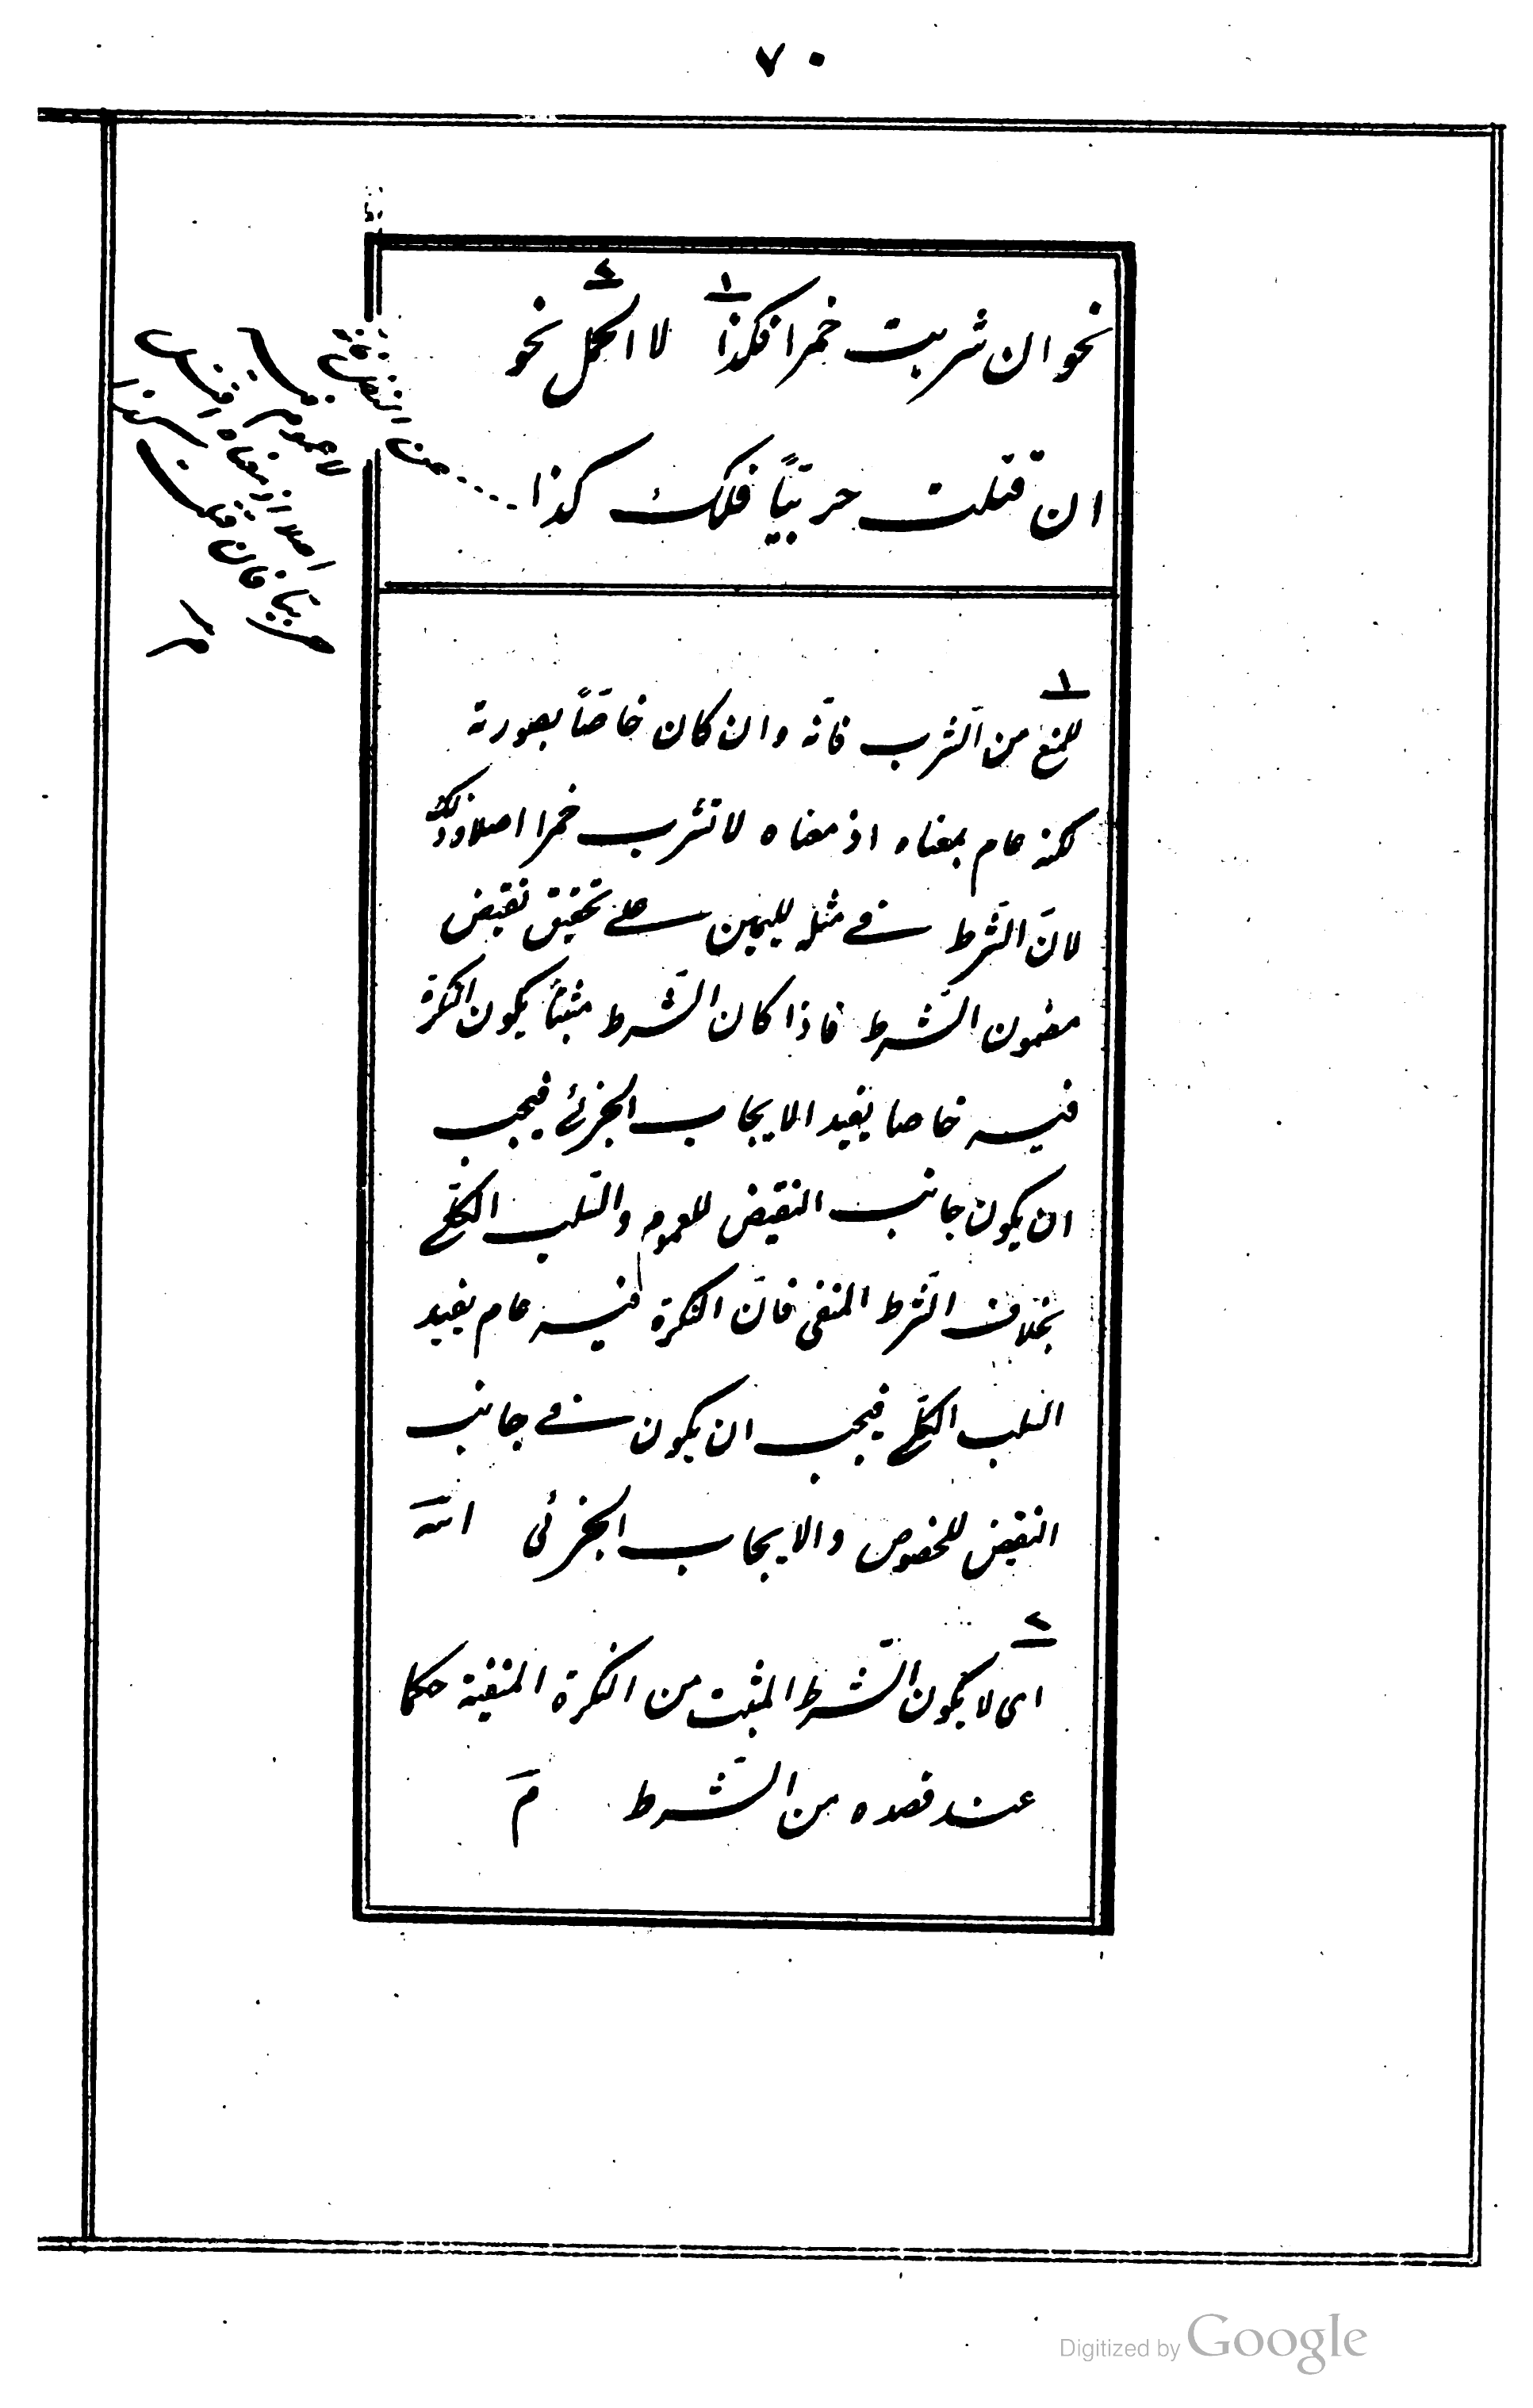 ٧٠
نحو ان شربت خمرا فكذا ١ لا الحمل ٢ نحو
ان قتلت حربيّاً فلك كذا
لا عموم
اصلا اذ معناه اقتل
حربيّا فان قتلت
١
للمنع من الشّرب فانّه وان كان خاصّاً بصورته
لكنه عام بمعناه اذ معناه لا تشرب خمرا اصلا وذلك
لانّ الشّرط في مثله لليمين على تحقيق نقيض
مضمون الشّرط فاذا كان الشّرط مثبتاً يكون النكرة
فيه خاصا يفيد الايجاب الجزئي فيجب
ان يكون جانب النقيض للعموم والسّلب الكلّي
بخلاف الشّرط المنفى فانّ النكرة فيه عام يفيد
السلب الكلّي فيجب ان يكون في جانب
النقيض للخصوص والايجاب الجزئى
٢
اى لا يكون الشّرط المثبت من النكرة المنفية حكما
عند قصده من الشّرط م
Digitized by Google